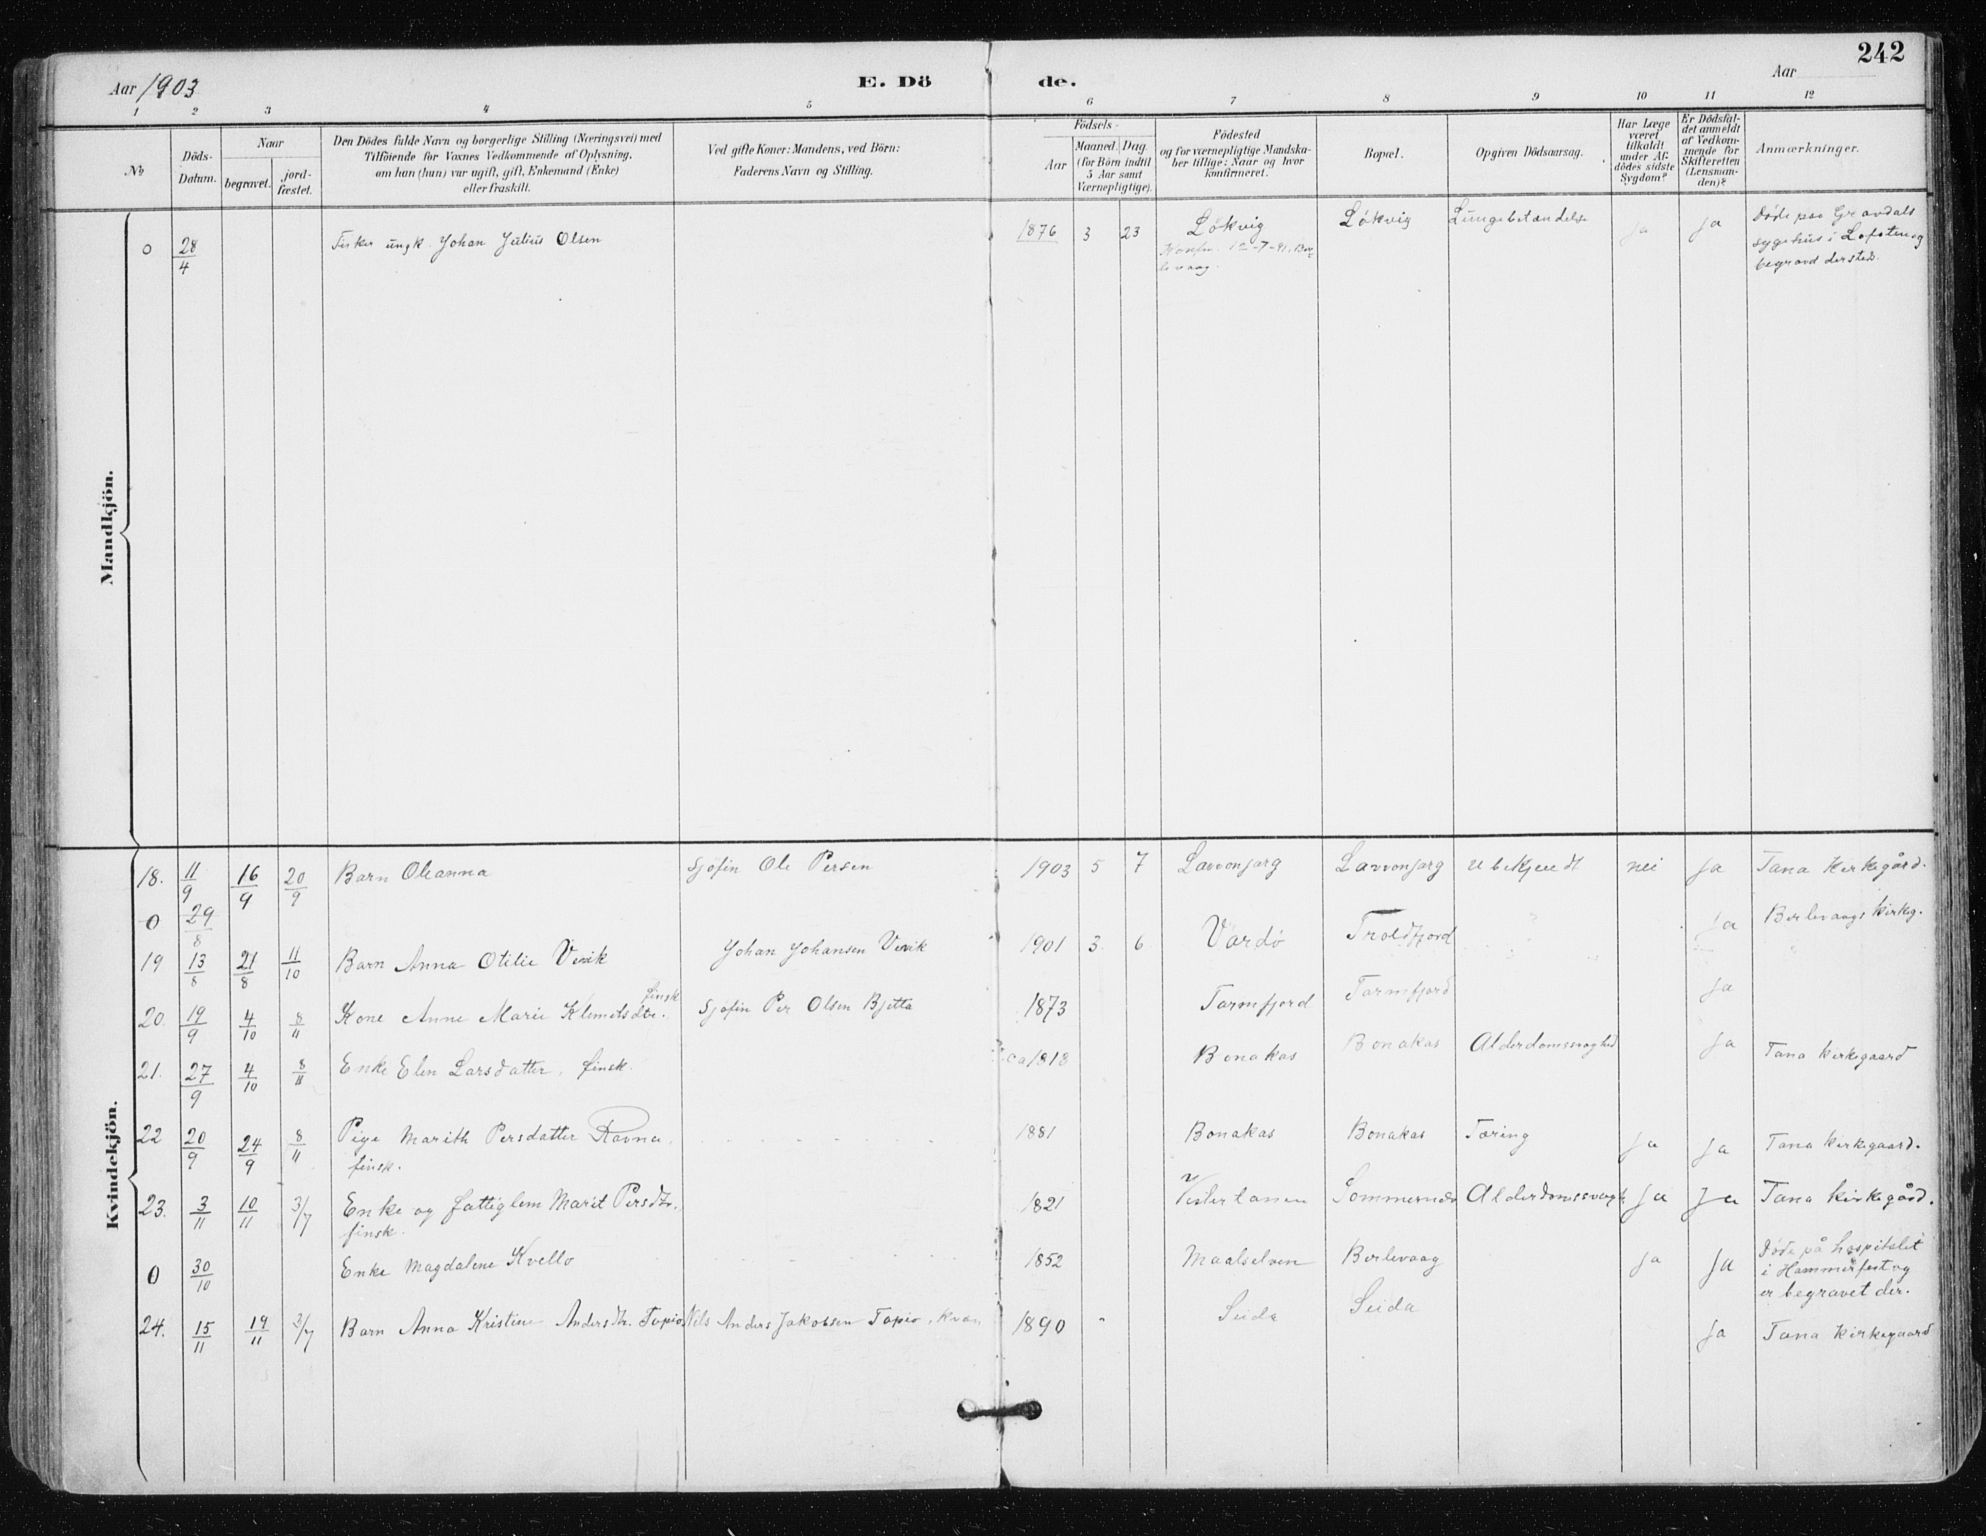 242
Aar 1903
E. Dö
de.
Aar
1 2 3 4 5 6 7 8 9 10 11 12
No
Döds-
Datum.
Naar
begravet.
jord-
fæstet.
Den Dödes fulde Navn og borgerlige Stilling (Næringsvei) med
Tilföiende for Voxnes Vedkommende af Oplysning,
om han (hun) var ugift, gift, Enkemand (Enke)
eller fraskilt.
Ved gifte Koner: Mandens, ved Börn:
Faderens Navn og Stilling.
Födsels-
Aar
Maaned. Dag
(for Börn indtil
5 Aar samt
Værnepligtige).
Födested
og for værnepligtige Mandska-
ber tillige: Naar og hvor
konfirmeret.
Bopæl.
Opgiven Dödsaarsag.
Har Læge
været
tilkaldt
under Af-
dödes sidste
Sygdom?
Er Dödsfal-
det anmeldt
af Vedkom-
mende for
Skifteretten
(Lensman-
den)?
Anmærkninger.
Mandkjön.
0 28/4 Fisker ungk. Johan Julius Olsen 1876 3 23 Lökvig Lökvig Lungebetændelse ja ja Döde paa Gravdals
Konfir. 12-7-91, Ber
levaag.
sygehus i Lofoten og
begravd dersteds.
Kvindekjön.
18. 11/9 16/9 20/9 Barn Oleanna Sjöfin Ole Persen 1903 5 7 Lavvonjarg Lavvonjarg Ubekjendt nei ja Tana Kirkegård.
0 29/8
19 13/8 21/8 11/10 Barn Anna Otilie Vevik Johan Johansen Vevik 1901 3. 6 Vardö Troldfjord ja Berlevaags kirkeg.
20. 19/9 4/10 8/11 Kone Anne Marie Klemetsdtr. finsk Sjöfin Per Olsen Bjetta 1873 Tarmfjord Tarmfjord ja
21. 27/9 4/10 8/11 Enke Elen Larsdatter, finsk. ca 1818 Bonakas Bonakas Alderdomssvaghed ja Tana kirkegaard
22 20/9 24/9 8/11 Pige Marith Persdatter Ravna, 1881 Bonakas Bonakas Tæring ja ja Tana kirkegaard.
finsk.
23. 3/11 10/11 3/7 Enke og fattiglem Marit Persdtr. 1821 Vestertanen Sommernæs Alderdomssvagh ja ja Tana kirkegård.
finsk.
0 30/10 Enke Magdalene Kvello 1852 Maalselven Berlevaag ja ja Döde på hospitalet
i Hammerfest og
er begravet der.
24. 15/11 19/11 3/7 Barn Anna Kristine Andersdtr. Tapio Nils Anders Jakobsen Tapio, kvæn 1890 " Seida Seida ja Tana kirkegaard